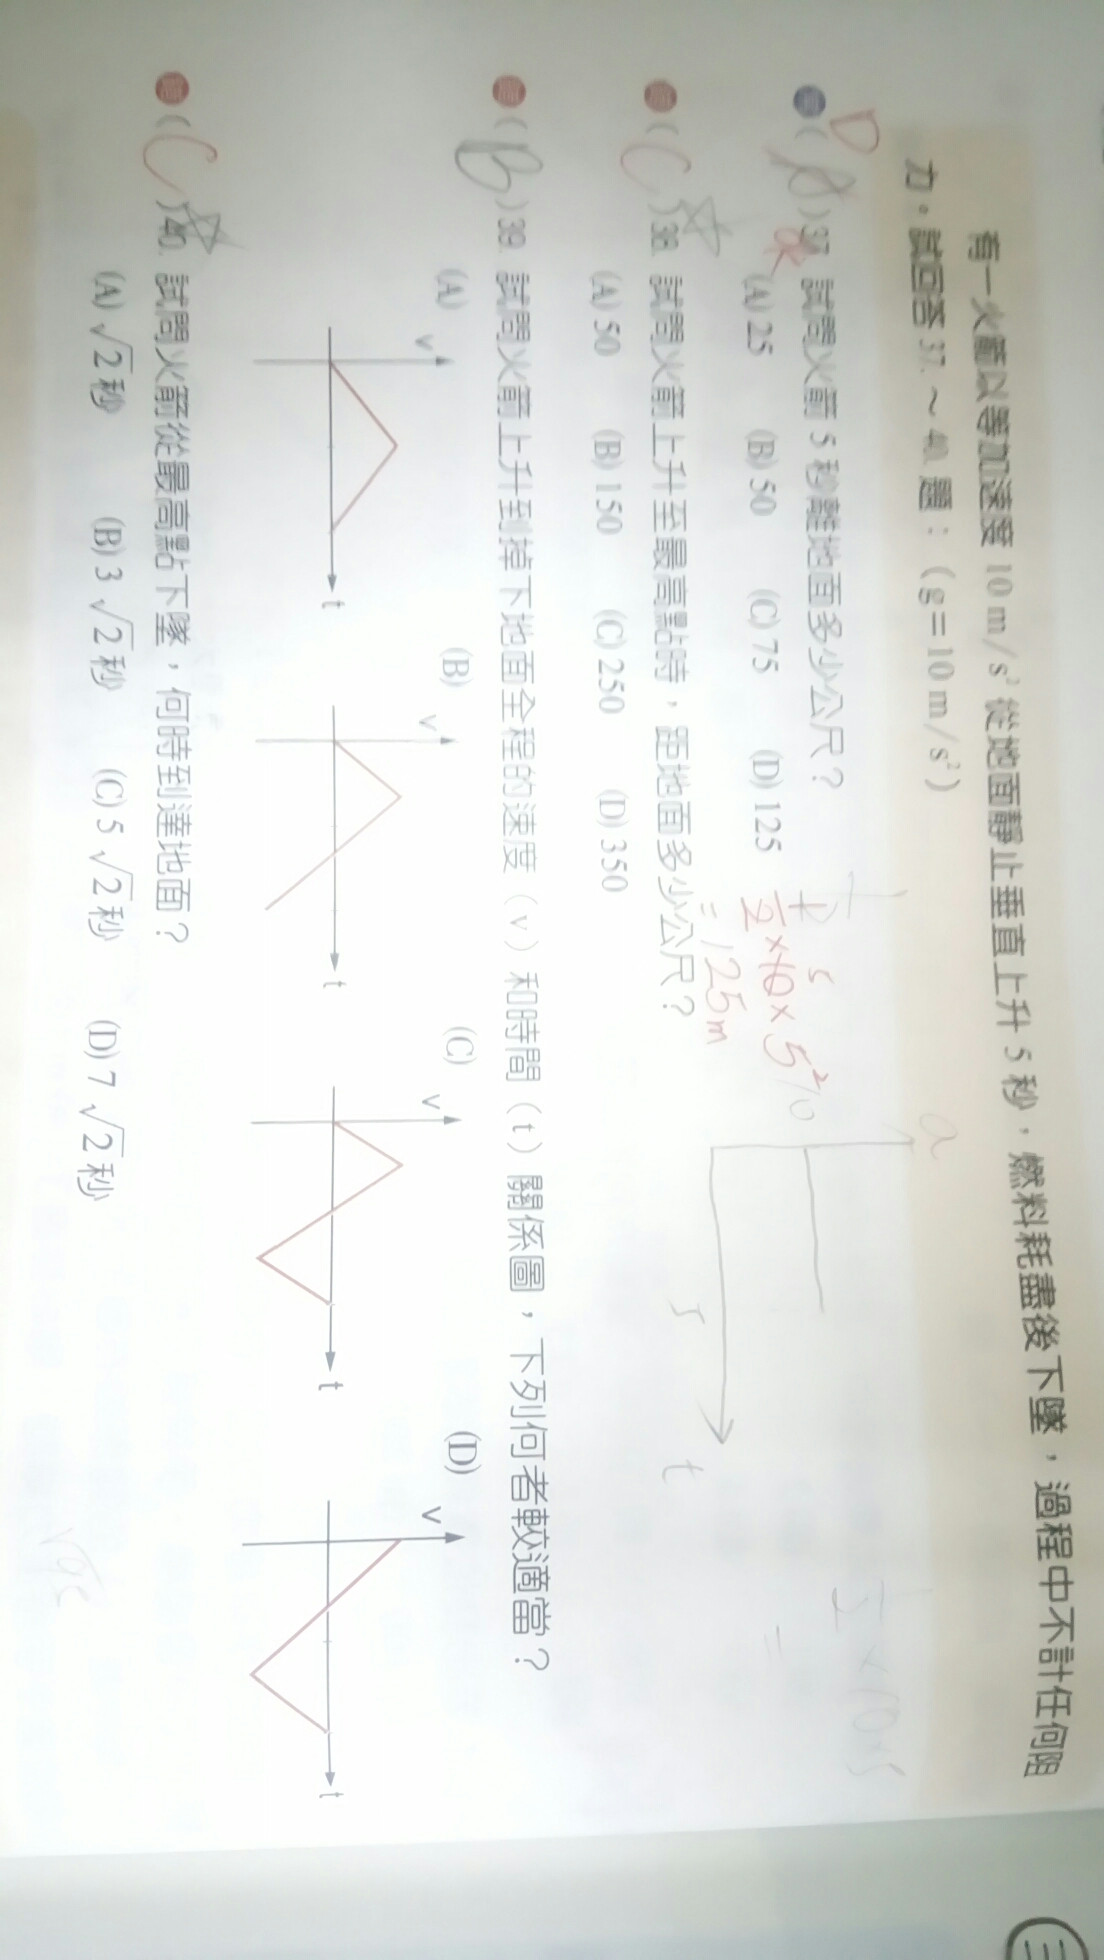 有一火箭以等加速度 10 m/s² 從地面靜止垂直上升 5 秒，燃料耗盡後下墜，過程中不計任何阻
力。試回答 37. ～ 40. 題：（g＝10 m/s²）
D
( )37. 試問火箭 5 秒離地面多少公尺？
(A) 25 (B) 50 (C) 75 (D) 125
1/2 × 10 × 5²
= 125 m
a
5
t
( C )38. 試問火箭上升至最高點時，距地面多少公尺？
(A) 50 (B) 150 (C) 250 (D) 350
( B )39. 試問火箭上升到掉下地面全程的速度（v）和時間（t）關係圖，下列何者較適當？
(A) (B) (C) (D)
v v v v
t t t t
( C )40. 試問火箭從最高點下墜，何時到達地面？
(A) √2 秒 (B) 3√2 秒 (C) 5√2 秒 (D) 7√2 秒
三